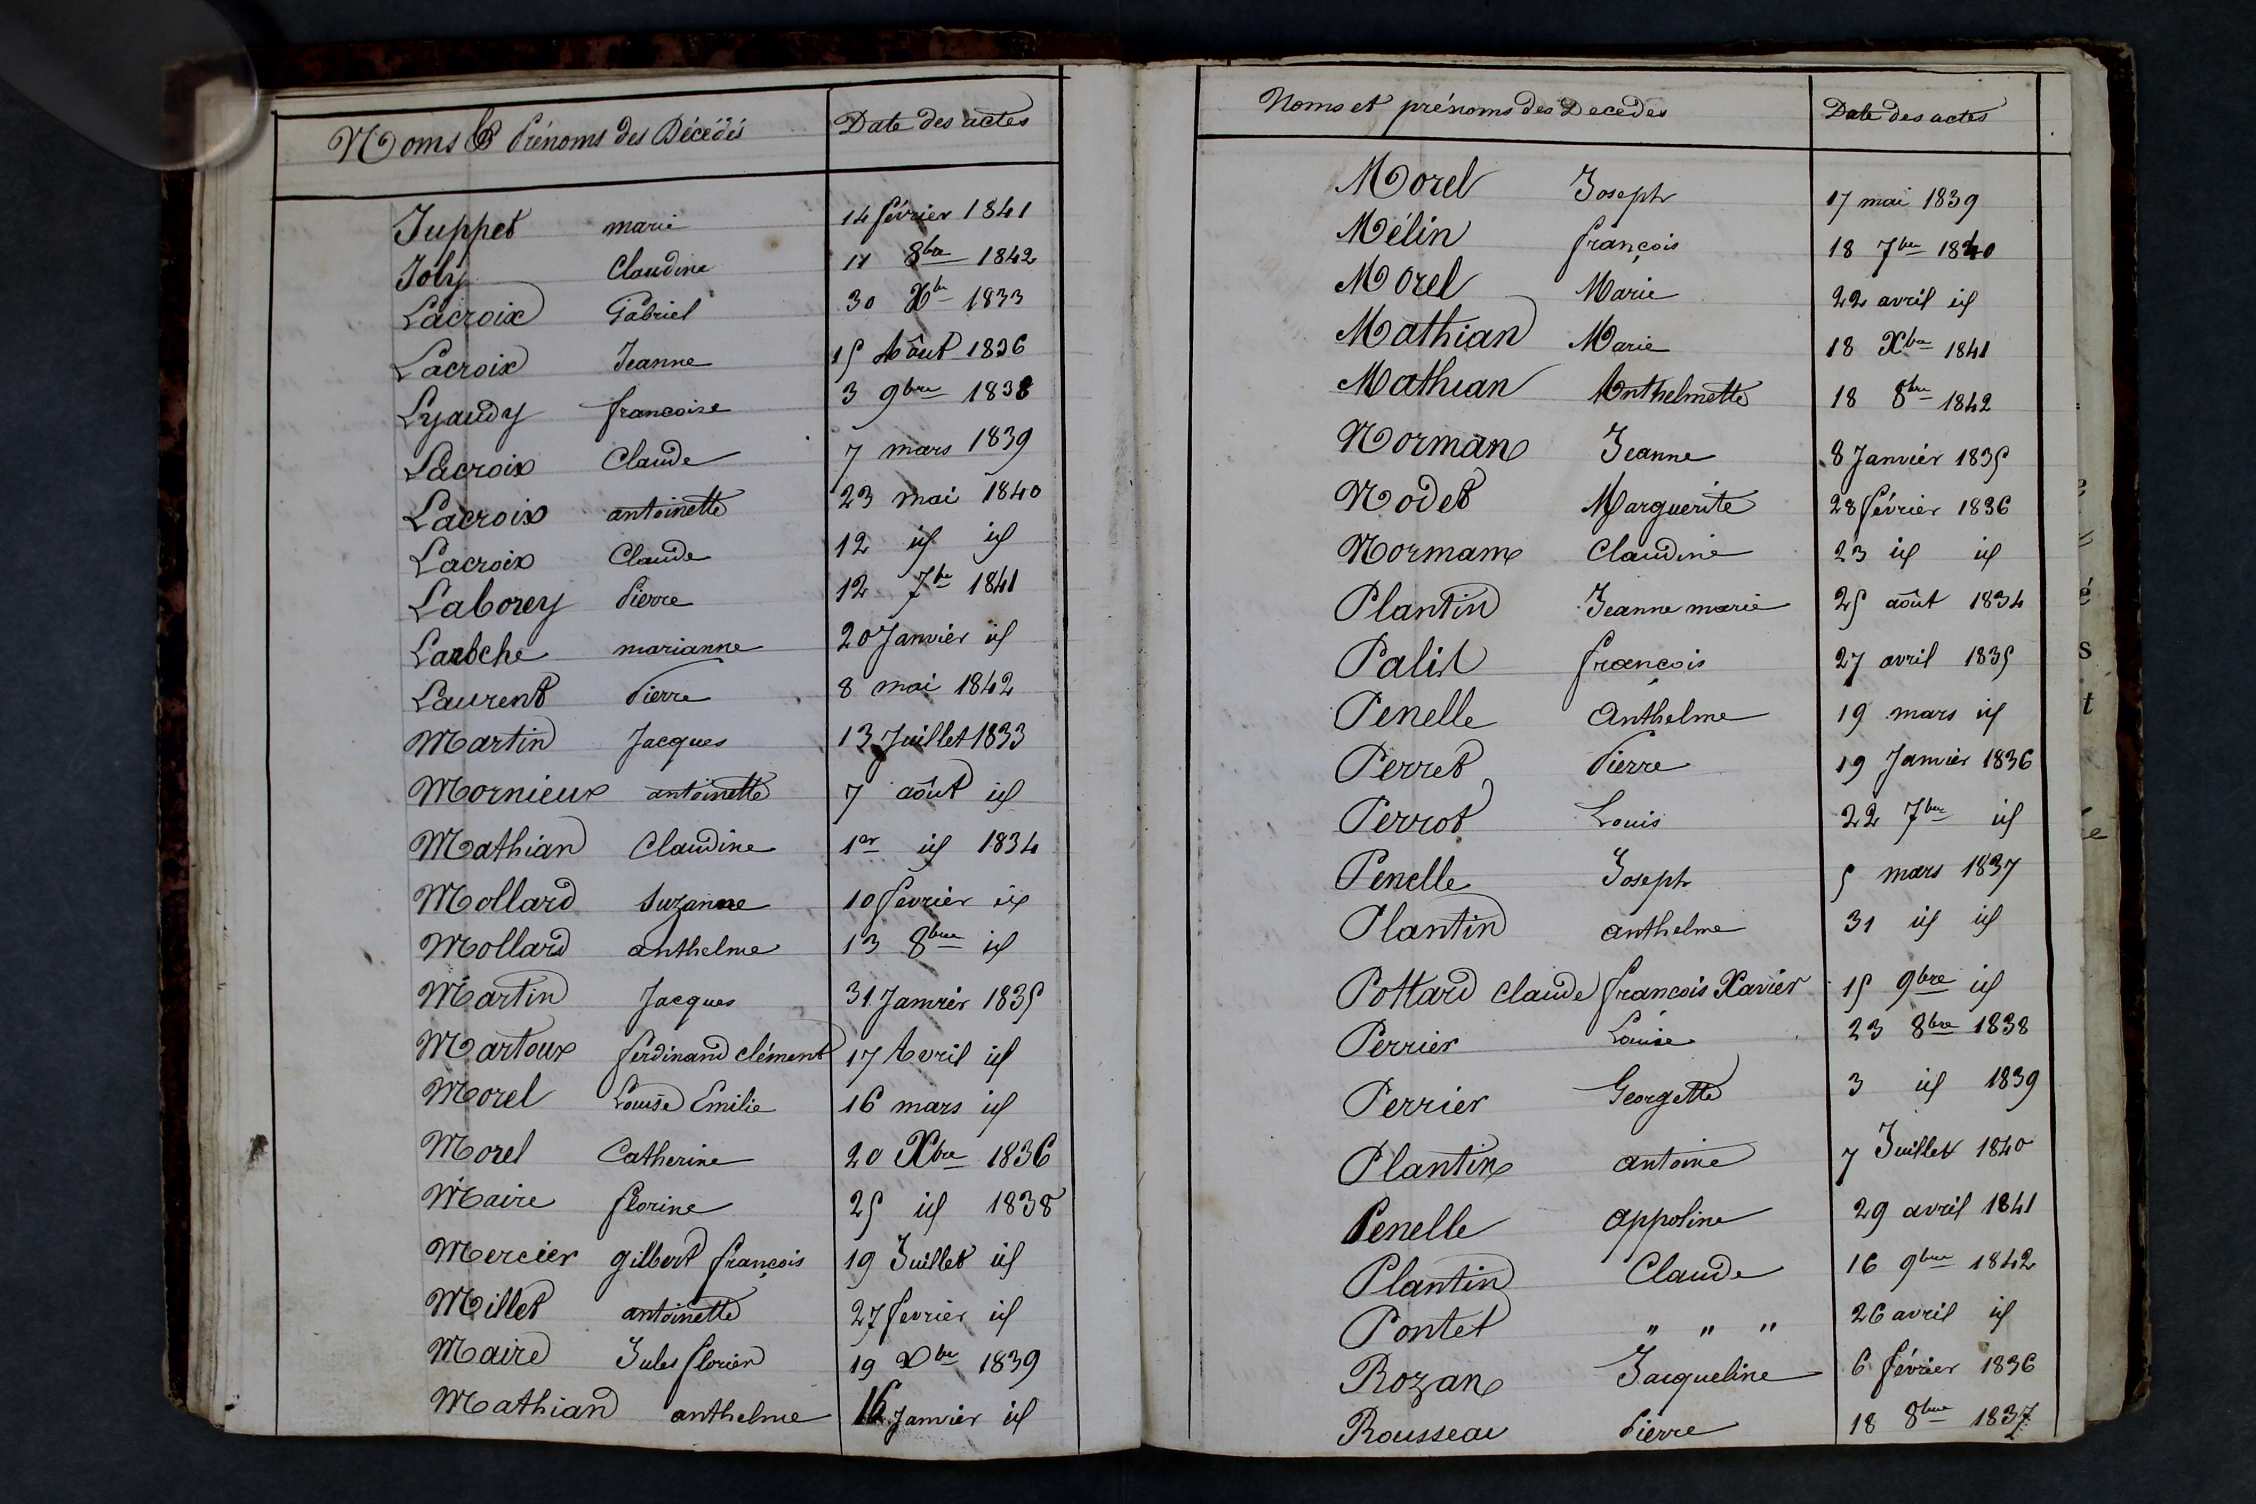 Noms & Prénoms des Décédés Date des actes
Juppet marie 14 février 1841
Joly Claudine 11 8bre 1842
Lacroix Gabriel 30 Xbre 1833
Lacroix Jeanne 15 Aôut 1836
Lyaudy françoise 3 9bre 1838
Lacroix Claude 7 mars 1839
Lacroix antoinette 23 mai 1840
Lacroix Claude 12 id id
Laborey Pierre 12 7bre 1841
Laroche marianne 20 Janvier id
Laurent Pierre 8 mai 1842
Martin Jacques 13 Juillet 1833
Mornieux antoinette 7 aôut id
Mathian Claudine 1er id 1834
Mollard Suzanne 10 fevrier id
Mollard anthelme 13 8bre id
Martin Jacques 31 Janvier 1835
Martoux ferdinand clément 17 Avril id
Morel Louise Emilie 16 mars id
Morel Catherine 20 Xbre 1836
Maire florine 25 id 1838
Mercier gilbert françois 19 Juillet id
Millet antoinette 27 fevrier id
Maire Jules florien 19 Xbre 1839
Mathian anthelme 16 Janvier id
Noms et prénoms des Decedes Date des actes
Morel Joseph 17 mai 1839
Mélin françois 18 7bre 1840
Morel Marie 22 avril id
Mathian Marie 18 Xbre 1841
Mathian Anthelmette 18 8bre 1842
Norman Jeanne 8 Janvier 1835
Nodet Marguerite 28 février 1836
Normam Claudine 23 id id
Plantin Jeanne marie 25 aôut 1834
Palit françois 27 avril 1835
Penelle Anthelme 19 mars id
Perret Pierre 19 Janvier 1836
Perrot Louis 22 7bre id
Penelle Joseph 5 mars 1837
Plantin anthelme 31 id id
Pottard claude françois Xavier 15 9bre id
Perrier Louise 23 8bre 1838
Perrier Georgette 3 id 1839
Plantin antoine 7 Juillet 1840
Penelle Appoline 29 avril 1841
Plantin Claude 16 9bre 1842
Pontet " " " 26 avril id
Rozan Jacqueline 6 février 1836
Rousseau Pierre 18 8bre 1837